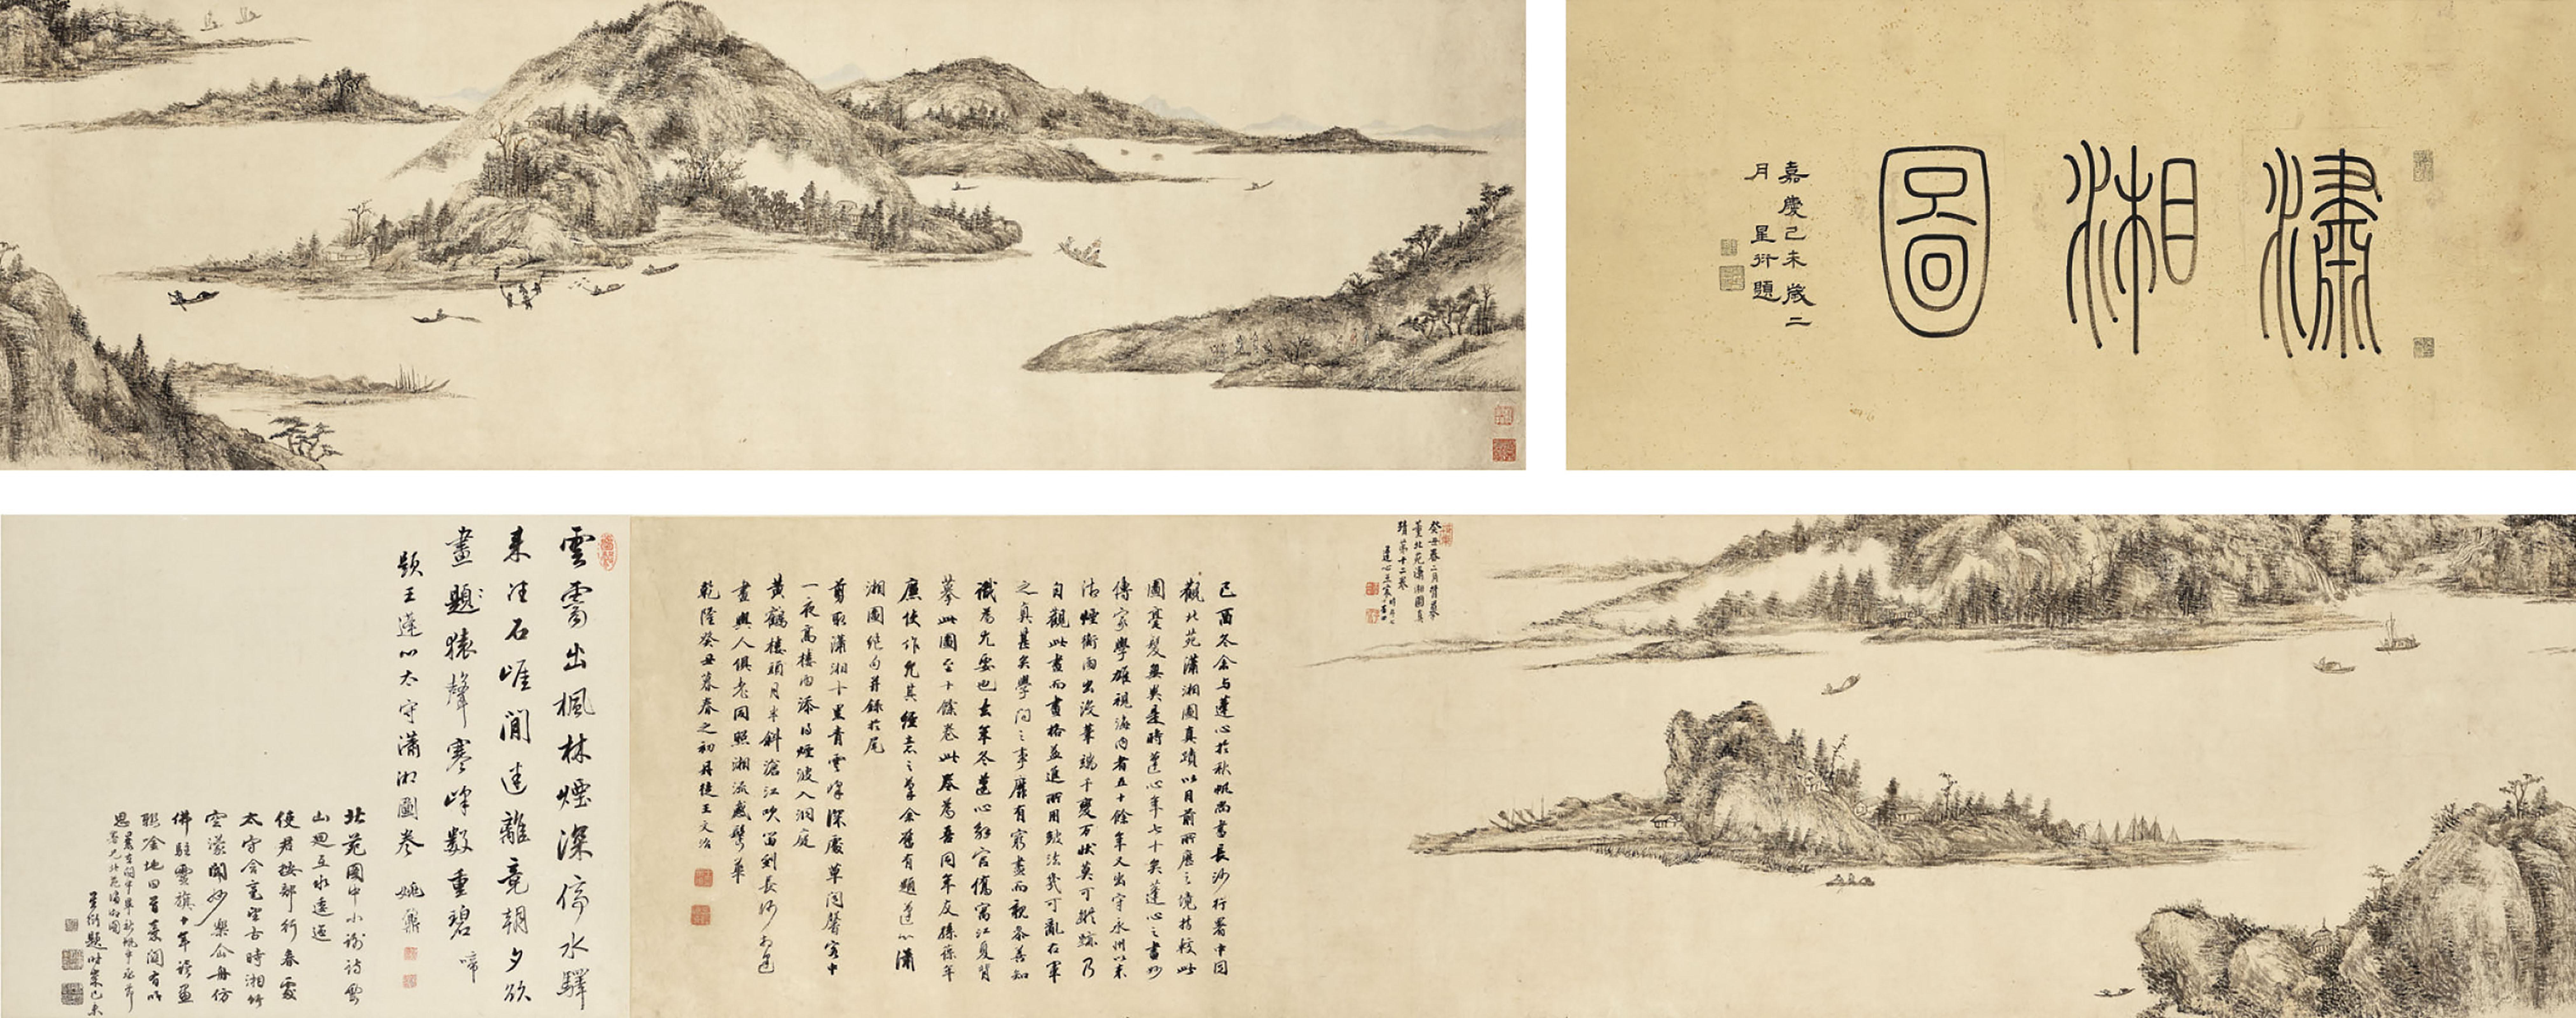 瀟湘圖
嘉慶己未歲二
月 星衍題
癸丑春二月背摹
董北苑瀟湘圖真
蹟第十二卷
蓬心王宸
己酉冬余与蓬心於秋帆尚書長沙行署中同
觀北苑瀟湘圖真蹟以目前所歷之境持較此
圖毫髮無異是時蓬心年七十矣蓬心之畫妙
傳家學雄視海內者五十餘年又出守永州以来
沽煙衝雨出沒筆端千變万狀莫可蹤跡乃
自觀此畫而畫格益進所用皴法幾可亂右軍
之真甚矣學问之事靡有窮盡而親参善知
識為尤要也去年冬蓬心解官僑寓江夏背
摹此圖至十餘卷此卷為吾同年友孫葆年
廉使作尤其經意之筆余舊有題蓬心瀟
湘圖絕句并錄於尾
剪取瀟湘十里青雲峰深處草閣馨客中
一夜高樓雨添得煙波入洞庭
黃鶴樓頭月半斜滄江吹笛到長沙於邑
畫與人俱老同照湘流感鬢華
乾隆癸丑暮春之初丹徒王文治
雲霄出楓林煙深停水驛
来往石崖間迷離竟朝夕欲
畫題猿聲寒峰数重碧 啼
題王蓬心太守瀟湘圖卷 姚鼐
北苑圖中小謝诗雲
山迴互水逶迤
使君按部行春處
太守含毫望古時湘竹
空濛聞妙樂仙舟仿
佛駐靈旗十年讀畫
聯吟地回首素闗有所
思 曩在關中畢秋帆中丞節
署見北苑瀟湘圖
星衍題時嘉慶己未